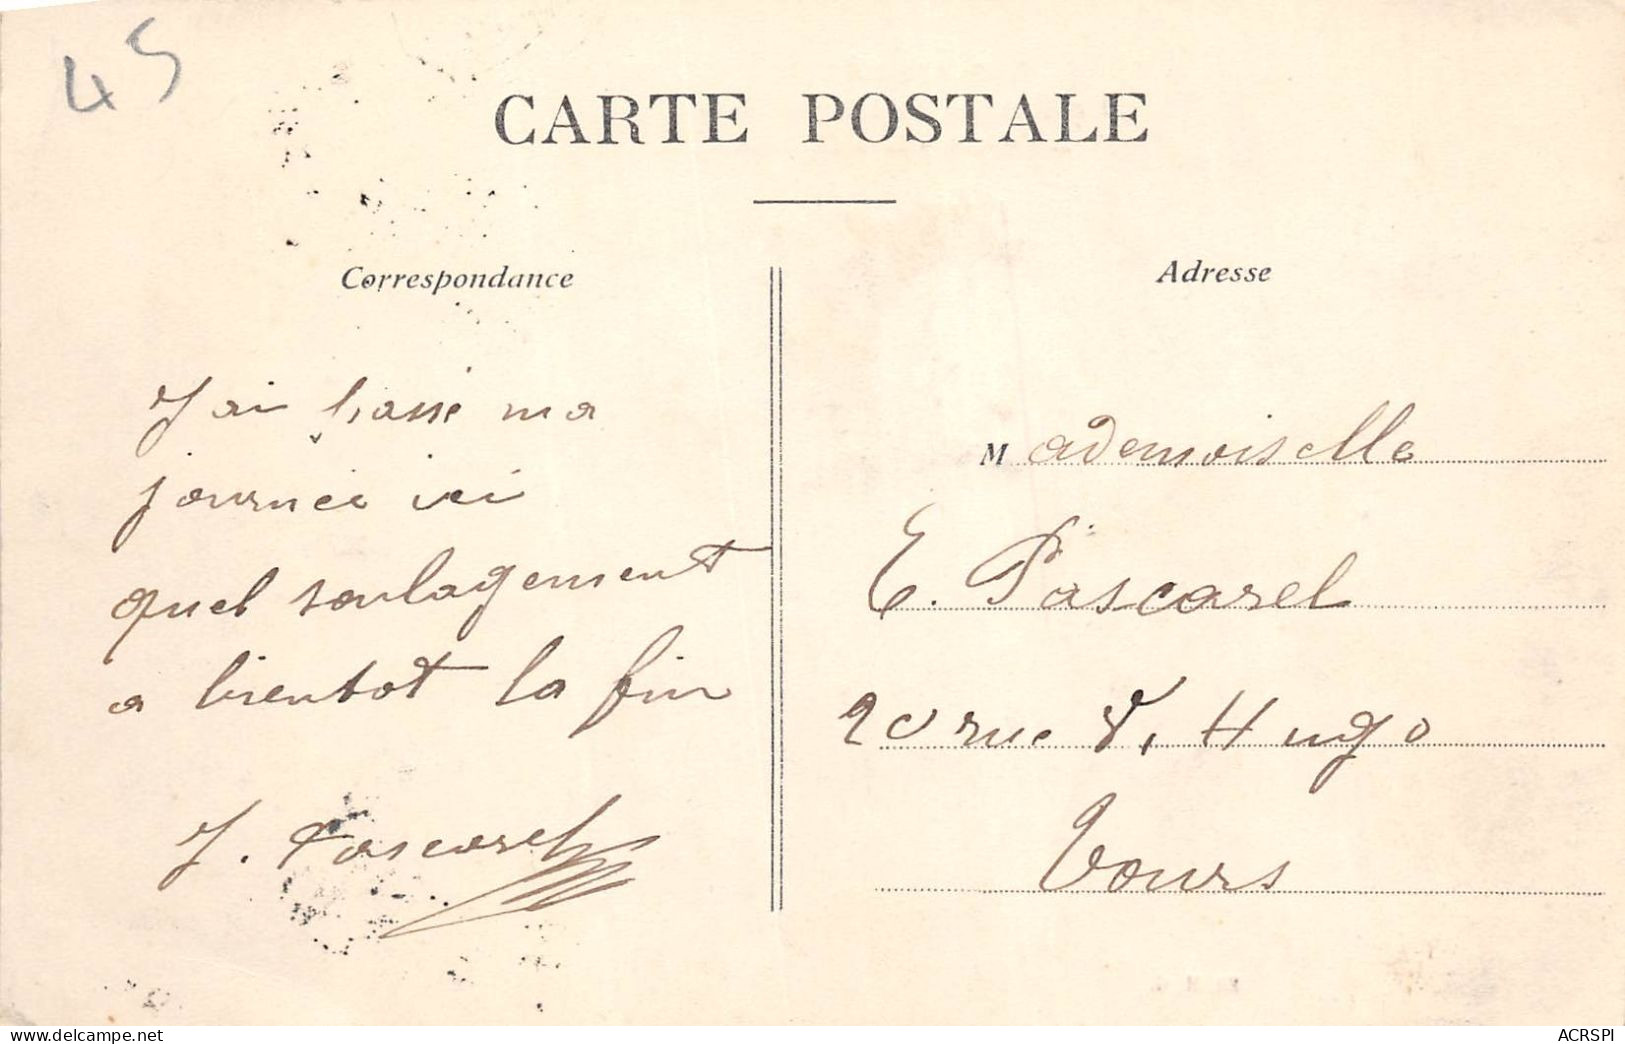 45
CARTE POSTALE
Correspondance
J'ai passé ma
journée ici
quel soulagement
a bientot la fin
J. Pascarel
Adresse
Mademoiselle
E. Pascarel
20 rue V. Hugo
Tours
www.delcampe.net
ACRSPI